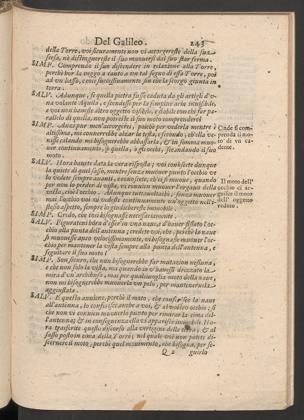 Del Galileo. 243
della Torre, voi sicuramente non vi accorgereste della sua
scesa, nè distinguereste il suo muoversi dal suo star ferma.
SIMP. Comprendo il suo discendere in relazione alla Torre,
perchè hor la veggo a canto a un tal segno di essa Torre, poi
ad un basso, e così successivamente sin che la scorgo giunta in
terra.
SALV. Adunque, se quella pietra fusse caduta da gli artigli d'una
volante Aquila, e scendesse per la semplice aria invisibile,
e voi non haveste altro oggetto visibile, e stabile con chi far
parallo di quella, non potreste il suo moto comprendere?
SIMP. Anzi pur me n'accorgerei, poichè per vederla mentre è
altissima, mi converrebbe alzar la testa, e secondo, ch'ella venisse
calando mi bisognerebbe abbassarla, & in somma muover
continuamente, ò quella, ò gli occhi, secondando il suo
moto.
Onde si comprenda
il moto
di un cadente.
SALV. Hora havete data la vera risposta; voi conoscete dunque
la quiete di quel sasso, mentre senza muover punto l'occhio ve
lo vedete sempre avanti, e conoscete, ch'ei si muove, quando
per non lo perder di vista, vi conviene muover l'organo della
vista, cioè l'occhio. Adunque
mai l'occhio voi vi vedeste continuamente un oggetto nell'istesso
aspetto, sempre lo giudichereste immobile.
Il moto dell'occhio
ci arguisce
il moto
dell'oggetto
veduto.
SIMP. Credo, che così bisognasse necessariamente.
SALV. Figuratevi hora d'esser in una nave, e d'haver fissato l'occhio
alla punta dell'antenna; credete voi, che, perchè la nave
si movesse anco velocissimamente, vi bisognasse muover l'occhio
per mantener la vista sempre alla punta dell'antenna, e
seguitare il suo moto?
SIMP. Son sicuro, che non bisognerebbe far mutazion nessuna, e
che non solo la vista, ma quando io v'havessi drizzato la
mira d'un archibuso, mai per qualsivoglia moto della nave,
non mi bisognerebbe muoverla un pelo, per mantenervela
aggiustata.
SALV. E questo avviene, perchè il moto, che conferisce la nave
all'antenna, lo conferisce anche a voi, & al vostro occhio; sì
che non vi convien muoverlo punto per rimirar la cima dell'antenna;
& in conseguenza ella vi apparisce immobile. Hora
trasferite questo discorso alla vertigine della terra, & al
sasso posto in cima della Torre, nel quale voi non potete discernere
il moto, perchè quel movimento, che bisogna, per
Q 2 seguirlo